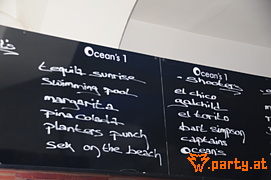 Ocean's 1
tequila sunrise
Swimming pool
margarita
pina colada
planters punch
sex on the beach
Ocean's 1
- shooters
el chico
el torito
bart simpson
captains
Ocean's
party.at